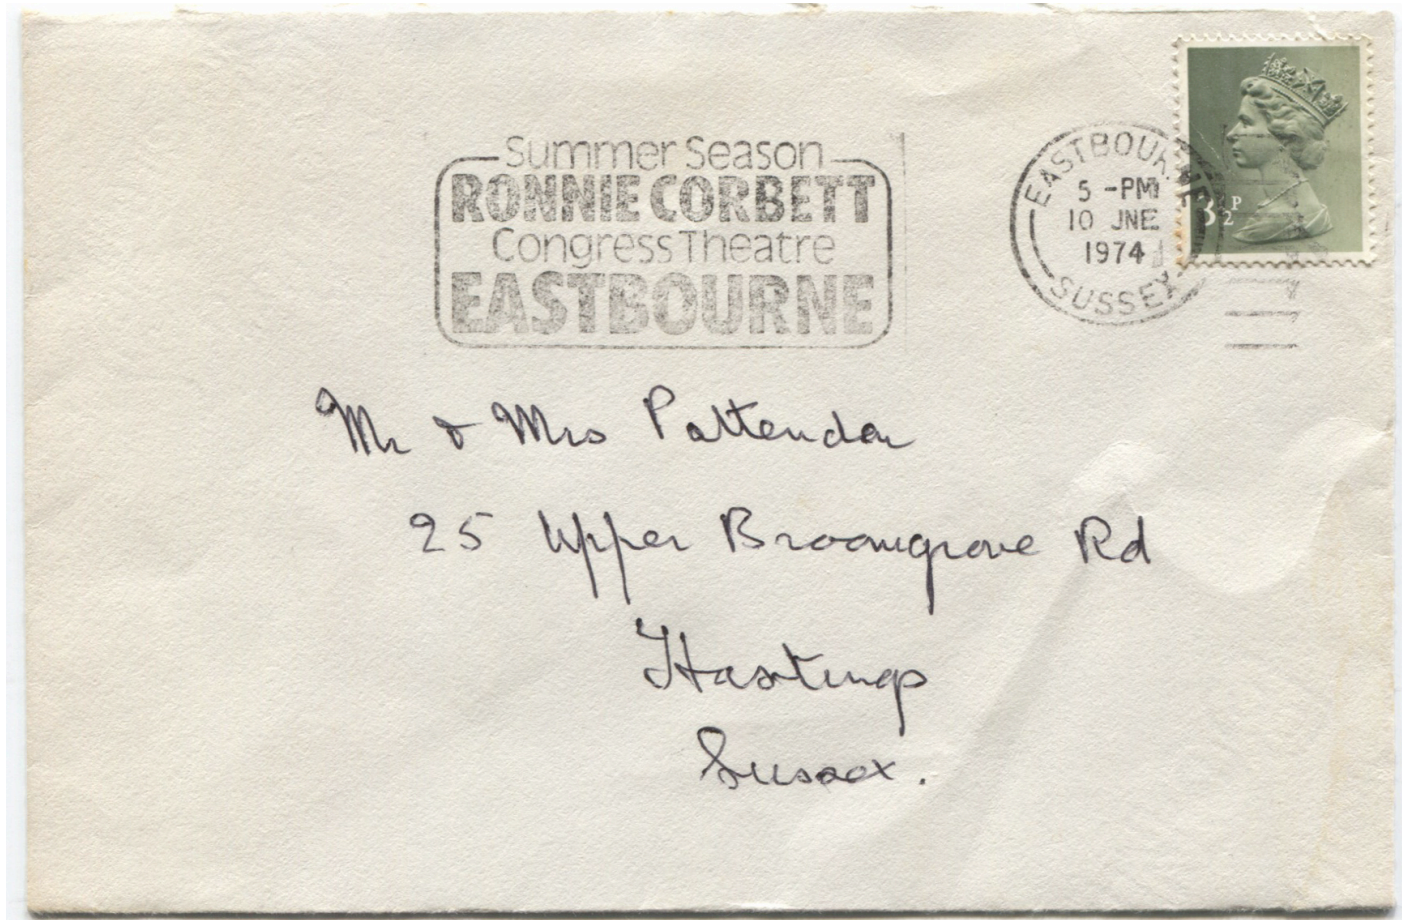 Summer Season
RONNIE CORBETT
Congress Theatre
EASTBOURNE
EASTBOURNE
5 -PM
10 JNE
1974
SUSSEX
3½P
Mr & Mrs Pattenden
25 Upper Broomgrove Rd
Hastings
Sussex.